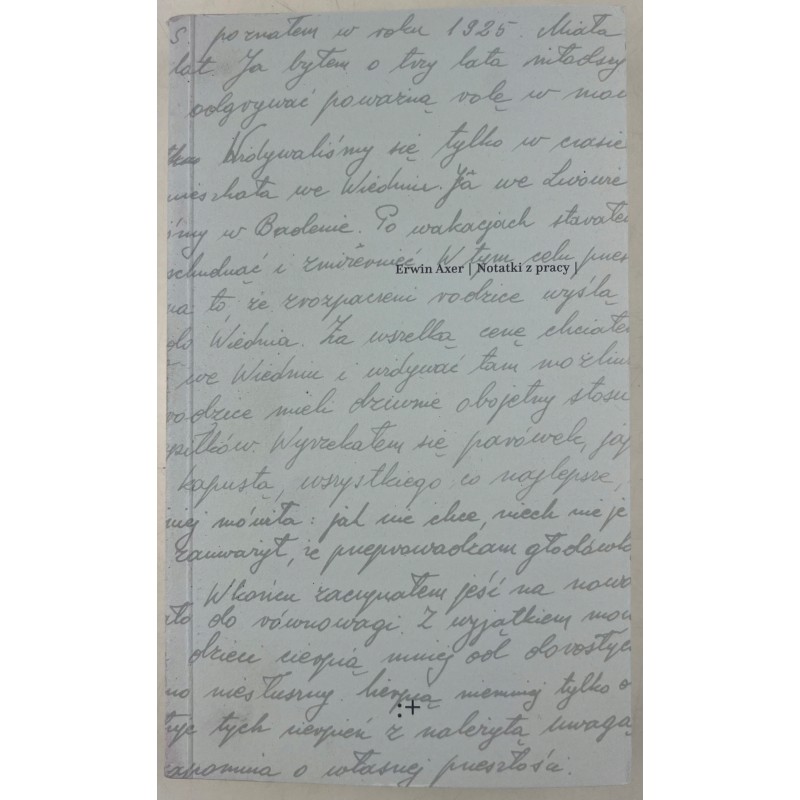 s poznałem w roku 1925. Miała
lat. Ja byłem o trzy lata młodszy
odgrywać poważną rolę w moi
Widywaliśmy się tylko w czasie
mieszkała we Wiedniu. Ja we Lwowie
śmy w Badenie. Po wakacjach starałe
schudnąć i zmizernieć. W tym celu przes
Erwin Axer | Notatki z pracy |
na to, że zrozpaczeni rodzice wyślą
do Wiednia. Za wszelką cenę chciałe
we Wiedniu i widywać tam możliw
rodzice mieli dziwnie obojętny stosu
siłków. Wyrzekałem się parówek, jaj
kapustą, wszystkiego co najlepsze,
niej mówiła: jak nie chce, niech nie je
zauważył, że przeprowadzam głodówk
W końcu zaczynałem jeść na nowo
ało do równowagi. Z wyjątkiem mom
dzieci cierpią mniej od dorosłyc
no niesłuszny. Cierpią niemniej tylko o
tuje tych cierpień z należytą uwagą
zapomina o własnej przeszłości.
:+